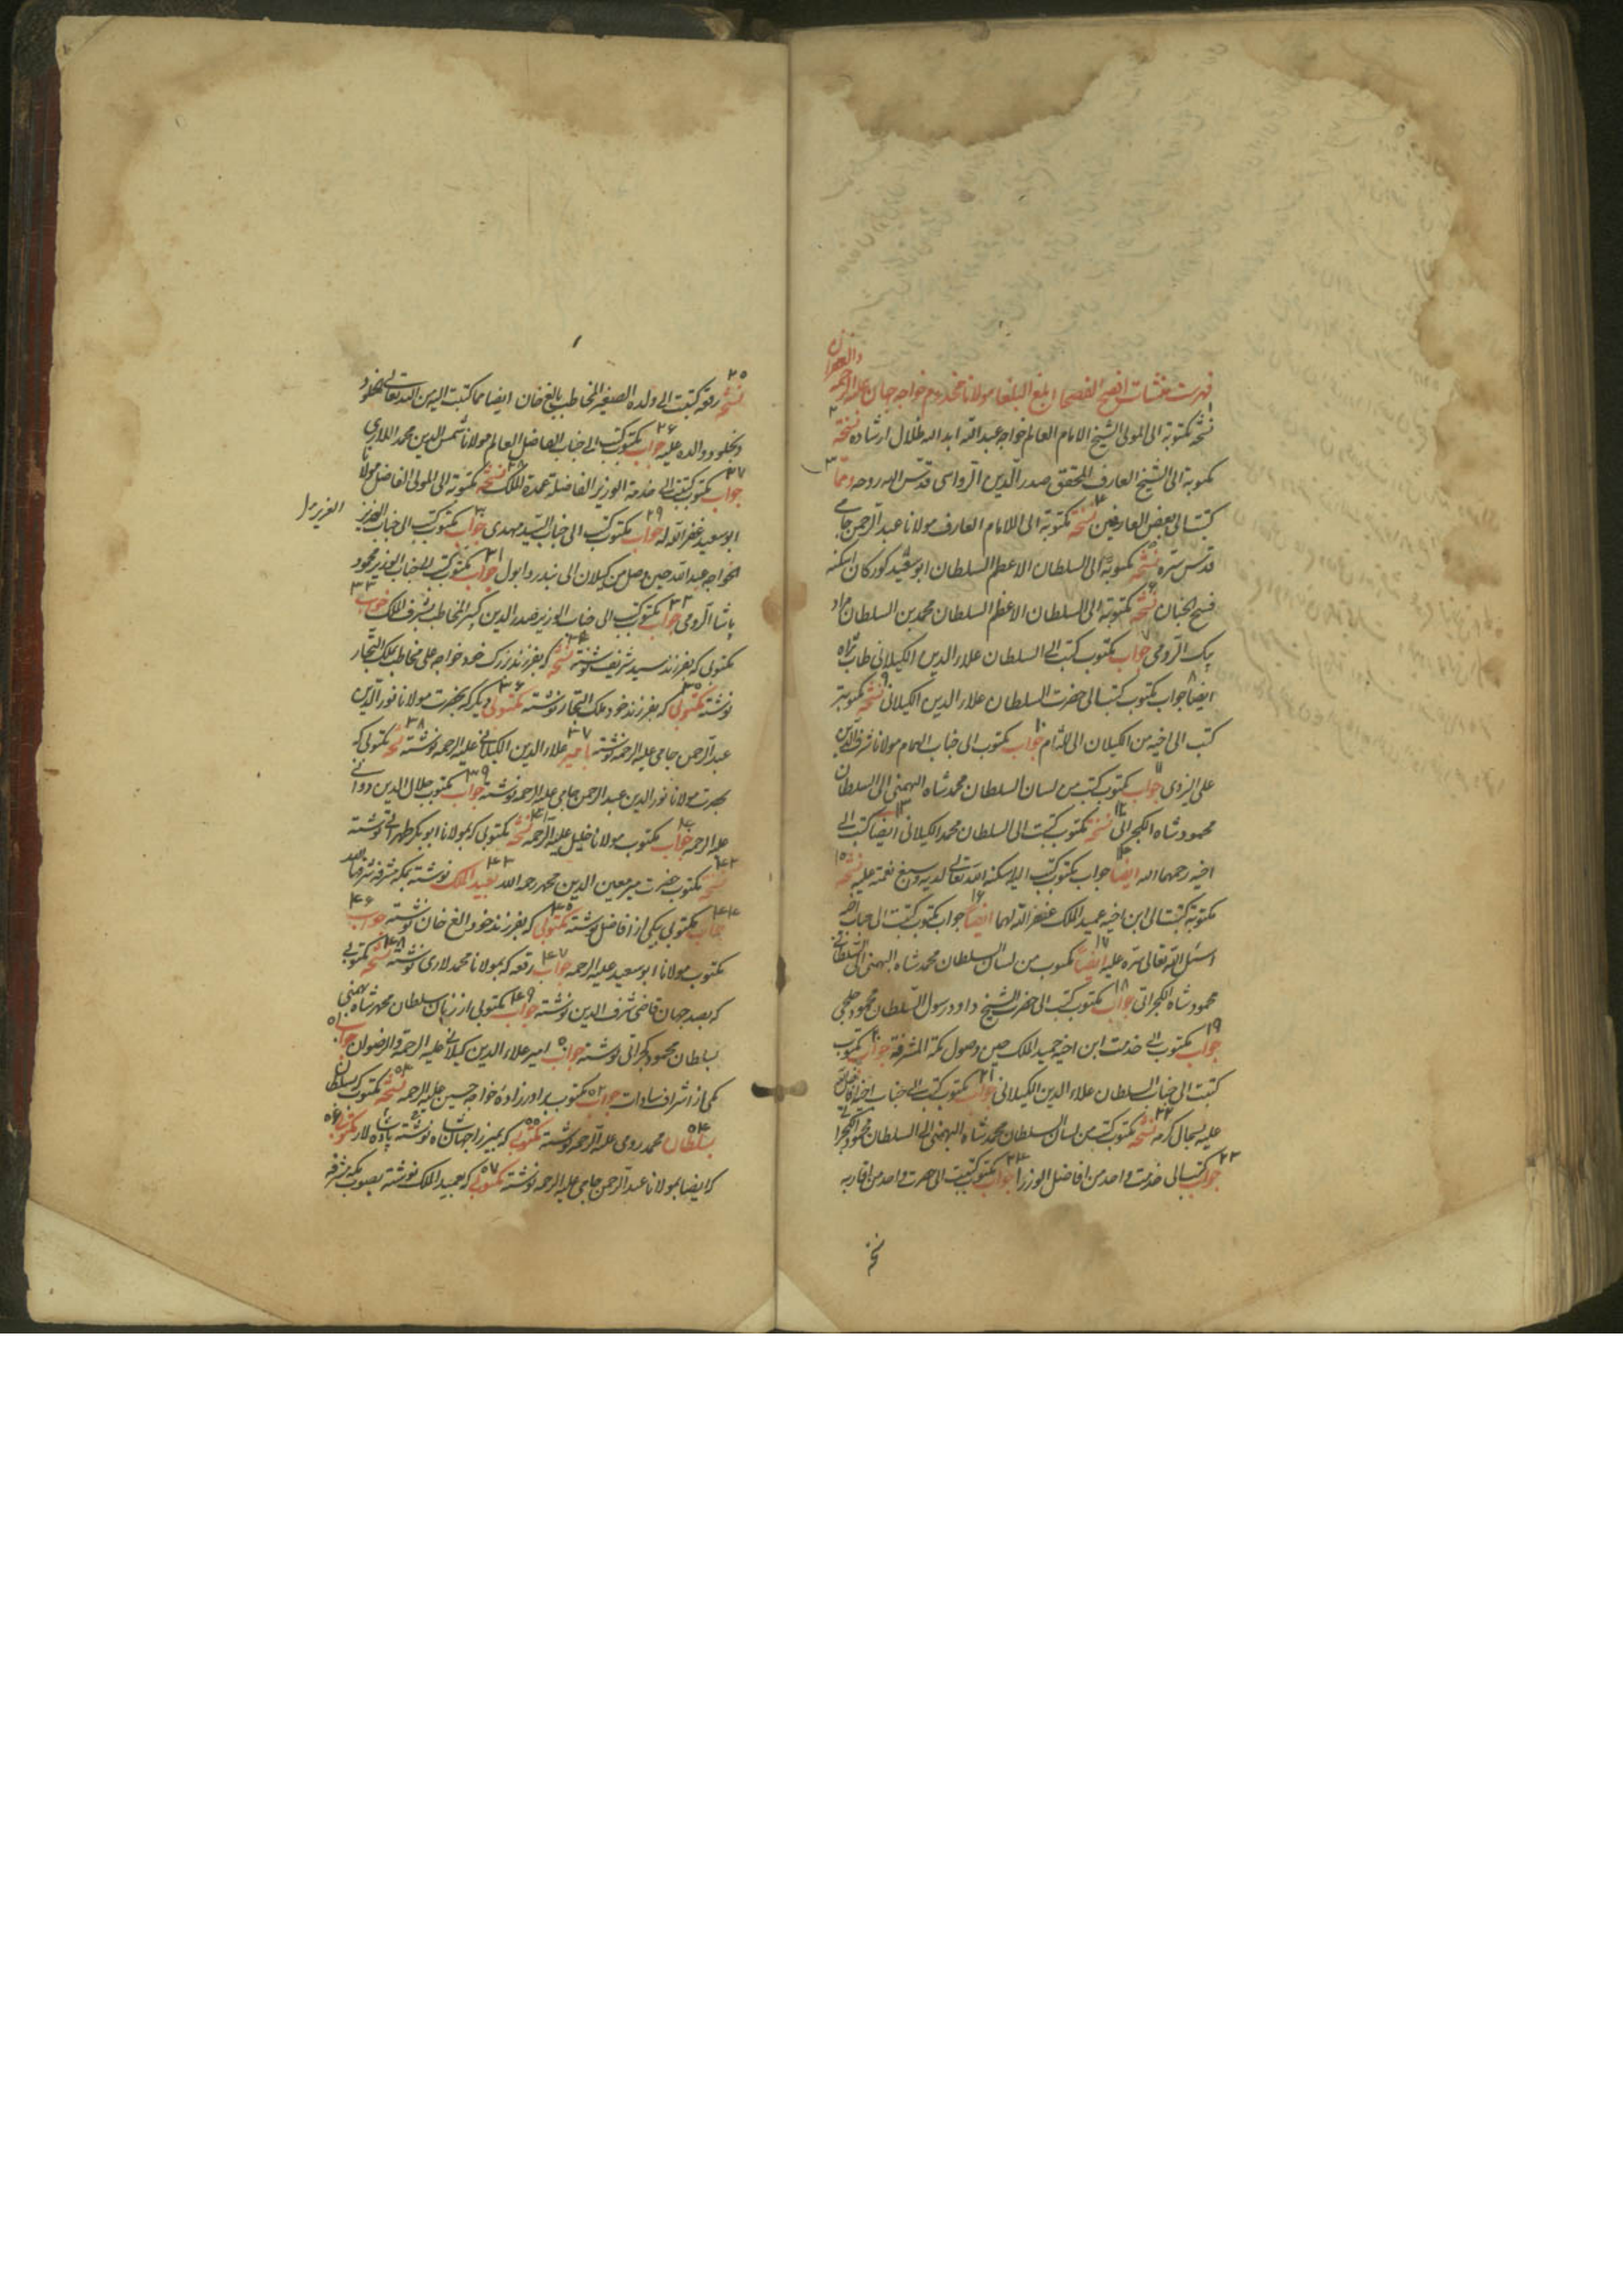 فهرست منشآت افصح الفصحا ابلغ البلغا مولانا مخدوم خواجه جهان علیه الرحمه والغفران
۱ نسخه مکتوبه الی المولی الشیخ الامام العالم خواجه عبدالله ابد الله ظلال ارشاده ۲ نسخه
مکتوبه الی الشیخ العارف المحقق صدرالدین الرواسی قدس الله روحه ۳ ومما
کتبت الی بعض العارفین ۴ نسخه مکتوبه الی الامام العارف مولانا عبدالرحمن جامی
قدس سره ۵ نسخه مکتوبه الی السلطان الاعظم السلطان ابوسعید کورکان اسکنه
فسیح الجنان ۶ نسخه مکتوبه الی السلطان الاعظم السلطان محمد بن السلطان مراد
بیک الرومی ۷ جواب مکتوب کتب الی السلطان علاء الدین الکیلانی طاب ثراه
۸ ایضا جواب مکتوب کتبت الی حضرت السلطان علاء الدین الکیلانی ۹ نسخه مکتوبه
کتب الی اخیه من الکیلان الی الشام ۱۰ جواب مکتوب الی جناب الهمام مولانا شرف الدین
علی الیزدی ۱۱ جواب مکتوب کتب من لسان السلطان محمد شاه البهمنی الی السلطان
محمود شاه الکجراتی ۱۲ نسخه مکتوب کتبت الی السلطان محمد الکیلانی ۱۳ ایضا کتب الی
اخیه رحمهما الله ۱۴ ایضا جواب مکتوب کتب الیه اسکنه الله تعالی لدیه وسبغ نعمته علیه ۱۵ نسخه
مکتوبه کتبت الی ابن اخیه عمید الملک غفر الله لهما ۱۶ ایضا جواب مکتوب کتبت الی جناب اخیه
اسبل الله تعالی ستره علیه ۱۷ ایضا مکتوب من لسان السلطان محمد شاه البهمنی الی السلطان
محمود شاه الکجراتی ۱۸ جواب مکتوب کتب الی حضرت الشیخ داود رسول السلطان محمود خلجی
۱۹ جواب مکتوب الی خدمت ابن اخیه عمید الملک حین وصول مکة المشرفة ۲۰ جواب مکتوب
کتبت الی جناب السلطان علاء الدین الکیلانی ۲۱ جواب مکتوب کتب الی جناب اخیه
علیه سجال کرمه ۲۲ نسخه مکتوب کتب من لسان السلطان محمد شاه البهمنی الی السلطان محمود الکجراتی
۲۳ جواب کتبت الی خدمت واحد من افاضل الوزرا ۲۴ جواب مکتوب کتبت الی حضرت واحد من اقاربه
نسخه
۲۵ نسخه رقعه کتبت الی ولده الصغیر المخاطب بالغ خان ایضا مما کتبت الیه من الله تعالی بخلود
وبخلود والده علیه ۲۶ جواب مکتوب کتب الی جناب الفاضل العالم مولانا شمس الدین محمد اللاری
۲۷ جواب مکتوب کتبت الی خدمة الوزیر الفاضل عمدة الملک ۲۸ نسخه مکتوبه الی المولی الفاضل مولانا
ابوسعید غفر الله له ۲۹ جواب مکتوب کتب الی جناب السید مهدی ۳۰ جواب مکتوب کتب الی جناب العزیز
الخواجه عبدالله حین وصل من کیلان الی بندر دابول ۳۱ جواب مکتوب کتب الی جناب الوزیر محمود
پاشا الرومی ۳۲ جواب مکتوب کتب الی جناب الوزیر صدرالدین کبیر المخاطب بشرف الملک ۳۳ جواب
مکتوبی که بفرزند سید شریف نوشته ۳۴ نسخه که بفرزند بزرک خود خواجه علی مخاطب بملک التجار
نوشته ۳۵ مکتوبی که بفرزند خود ملک التجار نوشته ۳۶ مکتوبی دیگر که بحضرت مولانا نورالدین
عبدالرحمن جامی علیه الرحمه نوشته ۳۷ بامیر علاء الدین الکیلانی علیه الرحمه نوشته ۳۸ نسخه مکتوبی که
بحضرت مولانا نورالدین عبدالرحمن جامی علیه الرحمه نوشته ۳۹ جواب مکتوب جلال الدین دوانی
علیه الرحمه ۴۰ جواب مکتوب مولانا خلیل علیه الرحمه ۴۱ نسخه مکتوبی که بمولانا ابوبکر طهرانی نوشته
۴۲ نسخه مکتوب حضرت میر معین الدین محمد رحمه الله ۴۳ بعمید الملک نوشته بمکه مشرفه شرفها الله
۴۴ جواب مکتوبی بیکی از افاضل نوشته ۴۵ مکتوبی که بفرزند خود الغ خان نوشته ۴۶ جواب
مکتوب مولانا ابوسعید علیه الرحمه ۴۷ جواب رقعه که بمولانا محمد لاری نوشته ۴۸ نسخه مکتوبی
که بصدر جهان قاضی شرف الدین نوشته ۴۹ جواب مکتوبی از زبان سلطان محمد شاه بهمنی
بسلطان محمود کجراتی نوشته ۵۰ جواب امیر علاء الدین کیلانی علیه الرحمة والرضوان ۵۱ جواب
یکی از اشراف سادات ۵۲ جواب مکتوب برادرزاده خواجه حسین علیه الرحمه ۵۳ نسخه مکتوب که سلطان
۵۴ بسلطان محمد رومی علیه الرحمه نوشته ۵۵ مکتوبی که بمیرزا جهان شاه نوشته پادشاه لار ۵۶ مکتوبی
که ایضا بمولانا عبدالرحمن جامی علیه الرحمه نوشته ۵۷ مکتوبی که بعمید الملک نوشته بصوب مکه مشرفه